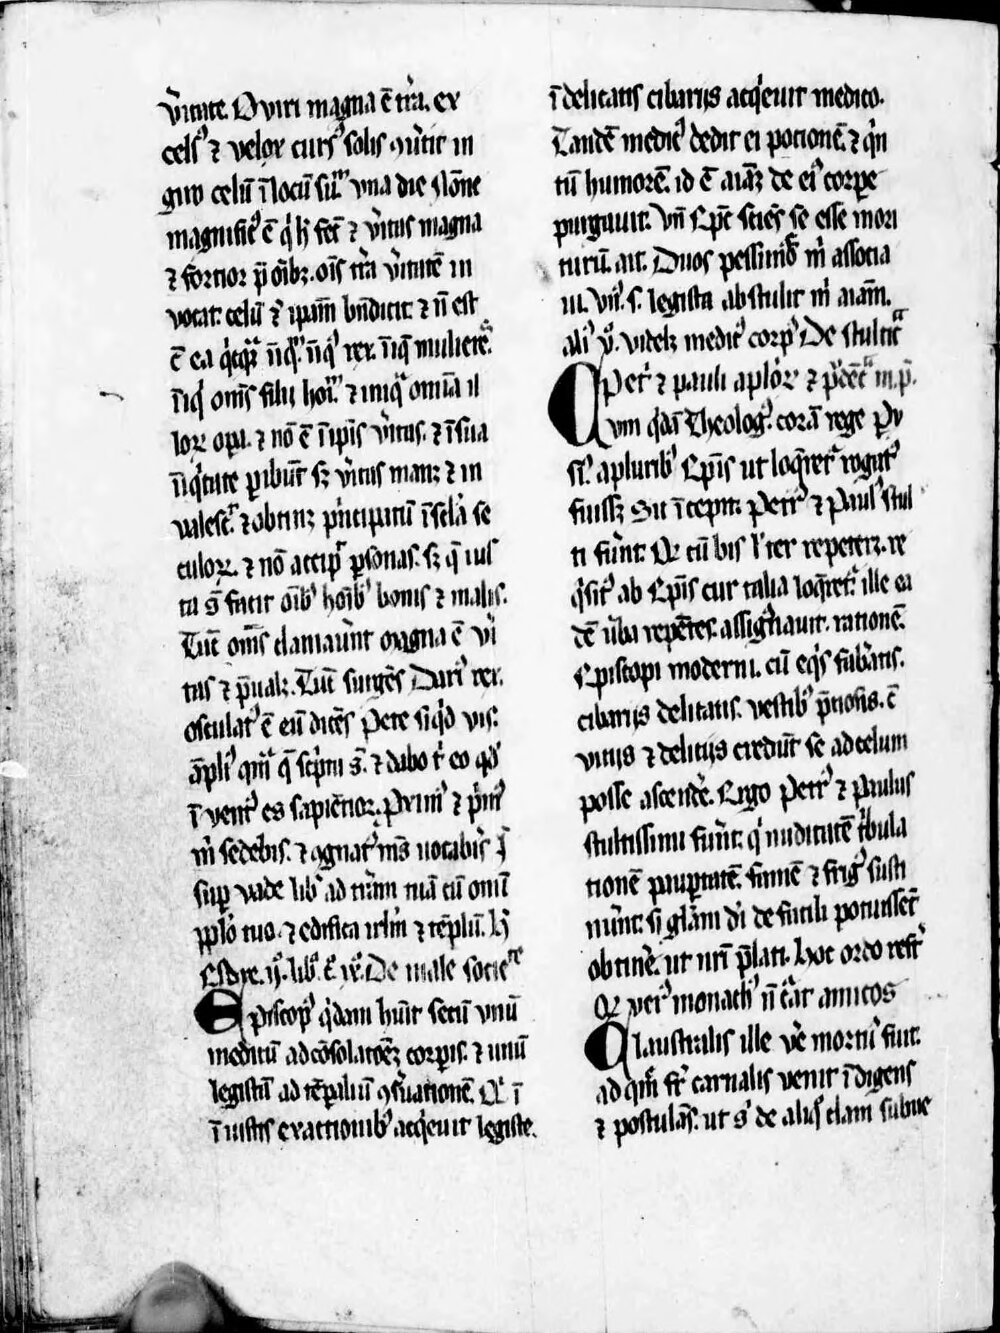 v̾itate. O viri magna ē tr̄a. ex
cels᷒ ⁊ velox curs᷒ solis ꝯu̾tit in
giro celū ī locū suū vna die nōne
magnific᷒ ē qͥ h̄ fec̄ ⁊ v̾itas magna
⁊ fortior p̄ oīb᷒. oīs tr̄a v̾itatē in
vocat. celū ⁊ ip̄am bn̄dicit ⁊ nō est
ē ea q̄cq̄ꝫ īiq᷒. īiq᷒ rex. īiq̄ mulieres.
īiqͥ om̄s filij hoīm ⁊ iniq̄ om̄ia il
loꝝ oꝑa. ⁊ nō ē ī ip̄is v̾itas. ⁊ ī sua
īiq̾tate ꝑibūt sꝫ v̾itas manꝫ ⁊ in
valesc̄ ⁊ obtinꝫ pͥncipatū ī sc̄la se
culoꝝ. ⁊ nō accip̄ ꝑsonas. sꝫ q̄ ius
ta sūt facit oīb᷒ hoīb᷒ bonis ⁊ malis.
Tūc om̄s clamau̾nt magna ē v̾i
tas ⁊ p̄ualꝫ. Tūc surgēs Dari᷒ rex.
osculat᷒ ē eū dicēs Pete siq̄d vis.
āpli᷒ qm̄ q̄ sc̄pta sūt. ⁊ dabo t̄ eo qd̄
ī vent᷒ es sapiētior. Proxim᷒ ⁊ pͥm᷒
m̄ sedebis. ⁊ ꝯgnat᷒ m̄s vocab̾is
suꝑ vade lib᷒ ad tr̄am tuā cū om̄i
pp̄lo tuo. ⁊ edifica irl̄m ⁊ tēplū. H̄
Esdre. ij. lib᷒. c̄. iv. De male societate
Episcop᷒ q̾dam hūit secū vnū
medicū ad cōsolatōeꝫ corꝑis. ⁊ unū
legistā ad tēꝑaliū ꝯs̾uationē. Qͥ ī
ī iustis exactionib᷒ acq̾euit legiste.
ī delicatis cibarijs acq̾euit medico.
Tandē medic᷒ dedit ei potionē. ⁊ q̄n
tū humorē. id ē aīaꝫ de ei᷒ corꝑe
purgauit. Vn̄ Ep̄c sciēs se esse mori
turū. ait. Duos pessimos m̄ associa
ui. Vn᷒. s. legista abstulit m̄ aīam.
ali᷒ v̊. videlꝫ medic᷒ corp᷒ De stultic̄
Petr̄ ⁊ pauli aploꝝ ⁊ p̄dēc̄ m. p̄.
Cum q̾dā Theolog᷒. corā rege Pv
si᷒. a plurib᷒ Ep̄is ut loq̄ret᷒ rogat᷒
fuissꝫ Sic īcepit. Petr᷒ ⁊ Paul᷒ stul
ti fu̾nt. Qͥ cū bis l᷒ ter repeterꝫ. re
q̾sit᷒ ab Ep̄is cur talia loq̄ret᷒. ille ea
dē v̾ba repetēs. assignauit. rationē.
Episcopi moderni. cū eq᷒s fal̾ratis.
cibarijs delicatis. vestib᷒ p̄tiosis. ī
vitijs ⁊ delicijs credūt se ad celum
posse ascēde̾. Ergo Petr᷒ ⁊ Paulus
stultissimi fu̾nt. qͥ nuditatē tͥbula
tionē pauꝑtatē. famē ⁊ frig᷒ susti
nu̾nt. si gl̄am dī de facili potuissēt
obtine̾. ut nr̄i p̄lati. Hoc ordo refr̄
Qͥ ver᷒ monach᷒ nō c̄at amicos
Claustralis ille v̾e mortu᷒ fuit.
ad qm̄ fr̄ carnalis venit īdigens
⁊ postulās. ut s᷒ de aliq̾ clam subue